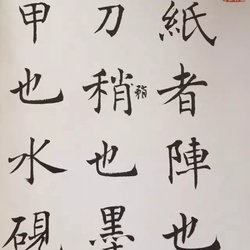 紙者陣也
刀稍也墨
甲也水硯